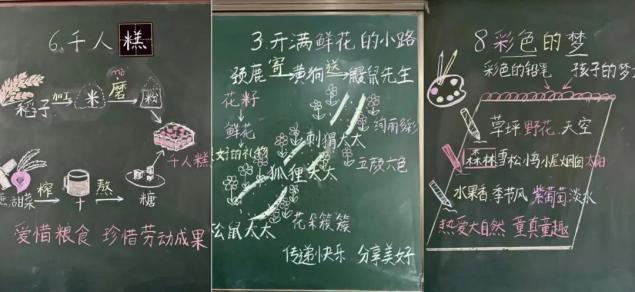 6.千人糕
加工
mò
稻子 米 磨 粉
千人糕
甜菜 榨 汁 熬 糖
爱惜粮食 珍惜劳动成果
3.开满鲜花的小路
颈鹿 寄 黄狗 送 鼹鼠先生
花籽
鲜花
美好的礼物
绚丽多彩
刺猬太太
五颜六色
狐狸太太
松鼠太太
花朵簇簇
传递快乐 分享美好
8 彩色的梦
彩色的铅笔 孩子的梦
草坪 野花 天空
森林 雪松 小鸟 小屋 烟囱 太阳
水果香 季节风 紫葡萄 淡水
热爱大自然 童真童趣